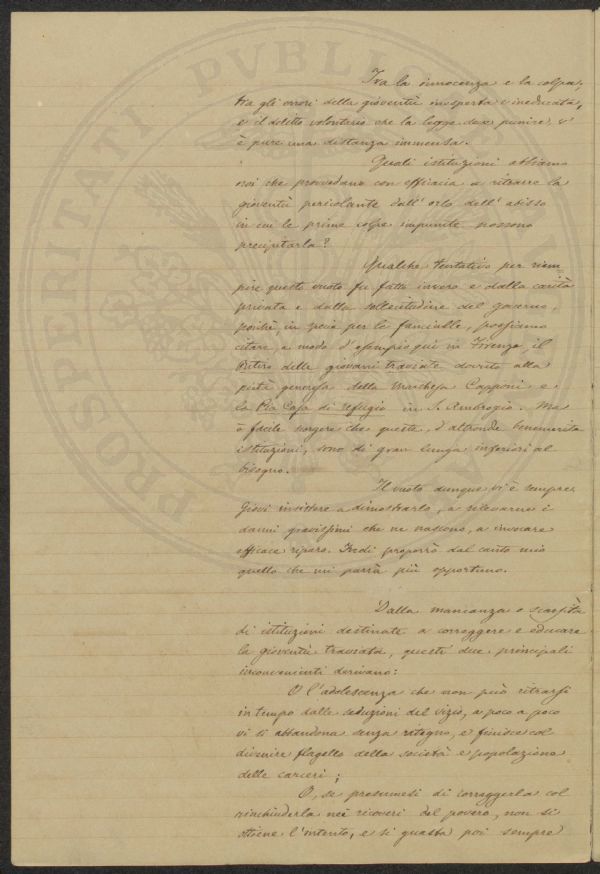 Tra la innocenza e la colpa,
tra gli errori della gioventù inesperta e ineducata,
e il delitto volontario che la legge deve punire, v'
è pure una distanza immensa.
Quali istituzioni abbiamo
noi che provvedano con efficacia a ritrarre la
gioventù pericolante dall'orlo dell'abisso
in cui le prime colpe impunite possono
precipitarla?
Qualche tentativo per riem
pire questo vuoto fu fatto invero e dalla carità
privata e dalla sollecitudine del governo,
poichè, in specie per le fanciulle, possiamo
citare, a modo d'esempio qui in Firenze, il
Ritiro delle giovani traviate dovuto alla
pietà generosa della Marchesa Capponi e
la Pia Casa di refugio in S. Ambrogio. Ma
è facile scorgere che queste, d'altronde benemerite
istituzioni, sono di gran lunga inferiori al
bisogno.
Il vuoto dunque vi è sempre.
Giovi insistere a dimostrarlo, a rilevarne i
danni gravissimi che ne nascono, a invocare
efficace riparo. Indi proporrò dal canto mio
quello che mi parrà più opportuno.
Dalla mancanza o scarsità
di istituzioni destinate a correggere e educare
la gioventù traviata, questi due principali
inconvenienti derivano:
O l'adolescenza che non può ritrarsi
in tempo dalle seduzioni del vizio, a poco a poco
vi si abbandona senza ritegno, e finisce col
divenire flagello della società e popolazione
delle carceri;
O, se presumesi di correggerla col
rinchiuderla nei ricoveri del povero, non si
ottiene l'intento, e si guasta poi sempre
PROSPERITATI PVBLIC